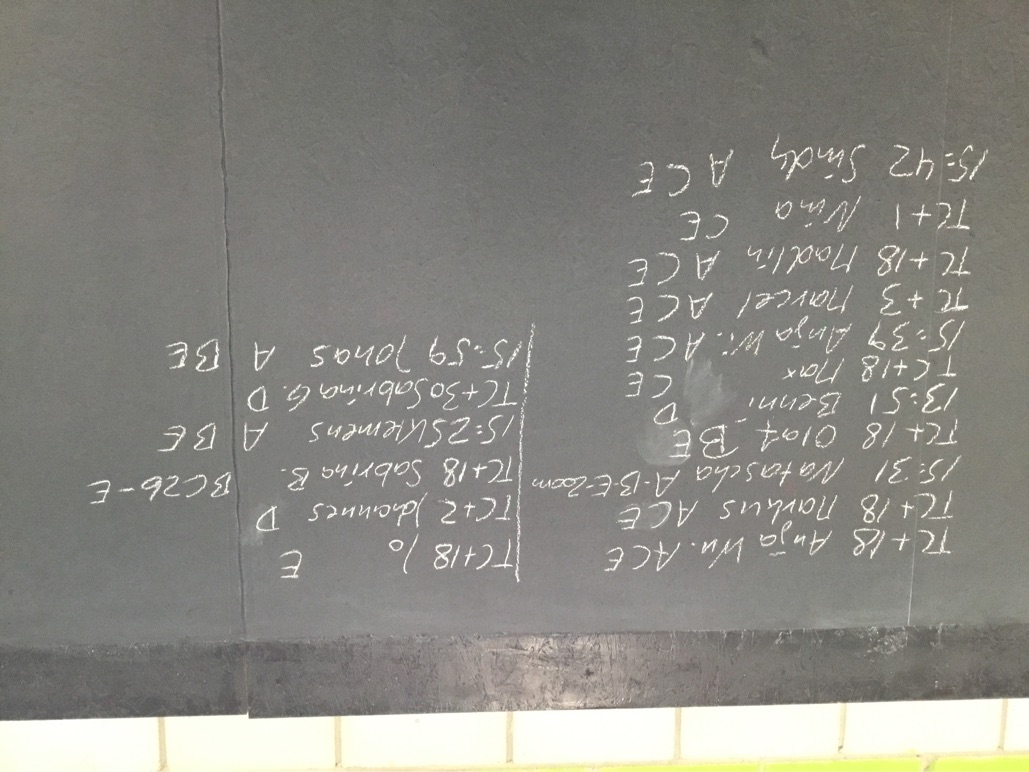 TC+18 Anja Wu. ACE
TC+18 Markus ACE
15:31 Natascha A-B-E-Zoom
TC+18 Olaf BE
13:51 Benni D
TC+18 Max CE
15:39 Anja Wi. ACE
TC+3 Marcel ACE
TC+18 Madlin ACE
TC+1 Nina CE
15:42 Sindy ACE
TC+18 Jo E
TC+2 Johannes D
TC+18 Sabrina B. BC2b-E
15:25 Klemens A BE
TC+30 Sabrina G. D
15:59 Jonas A BE